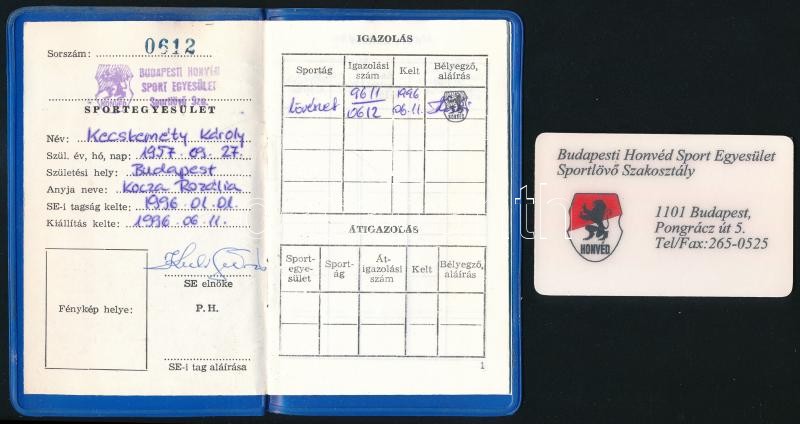 Sorszám: 0612
BUDAPESTI HONVÉD
SPORT EGYESÜLET
Sportlövő Szo.
HONVÉD
SPORTEGYESÜLET
Név: Kecskeméty Károly
Szül. év, hó, nap: 1957 09. 27.
Születési hely: Budapest
Anyja neve: Kocza Rozália
SE-i tagság kelte: 1996.01.01.
Kiállítás kelte: 1996.06.11.
Fénykép helye:
SE elnöke
P.H.
SE-i tag aláírása
IGAZOLÁS
Sportág Igazolási szám Kelt Bélyegző, aláírás
Lövészet 9611 0612 1996 06.11.
ÁTIGAZOLÁS
Sport-egye-sület Sport-ág Át-igazolási szám Kelt Bélyegző, aláírás
1
Budapesti Honvéd Sport Egyesület
Sportlövő Szakosztály
HONVÉD
1101 Budapest,
Pongrácz út 5.
Tel/Fax:265-0525